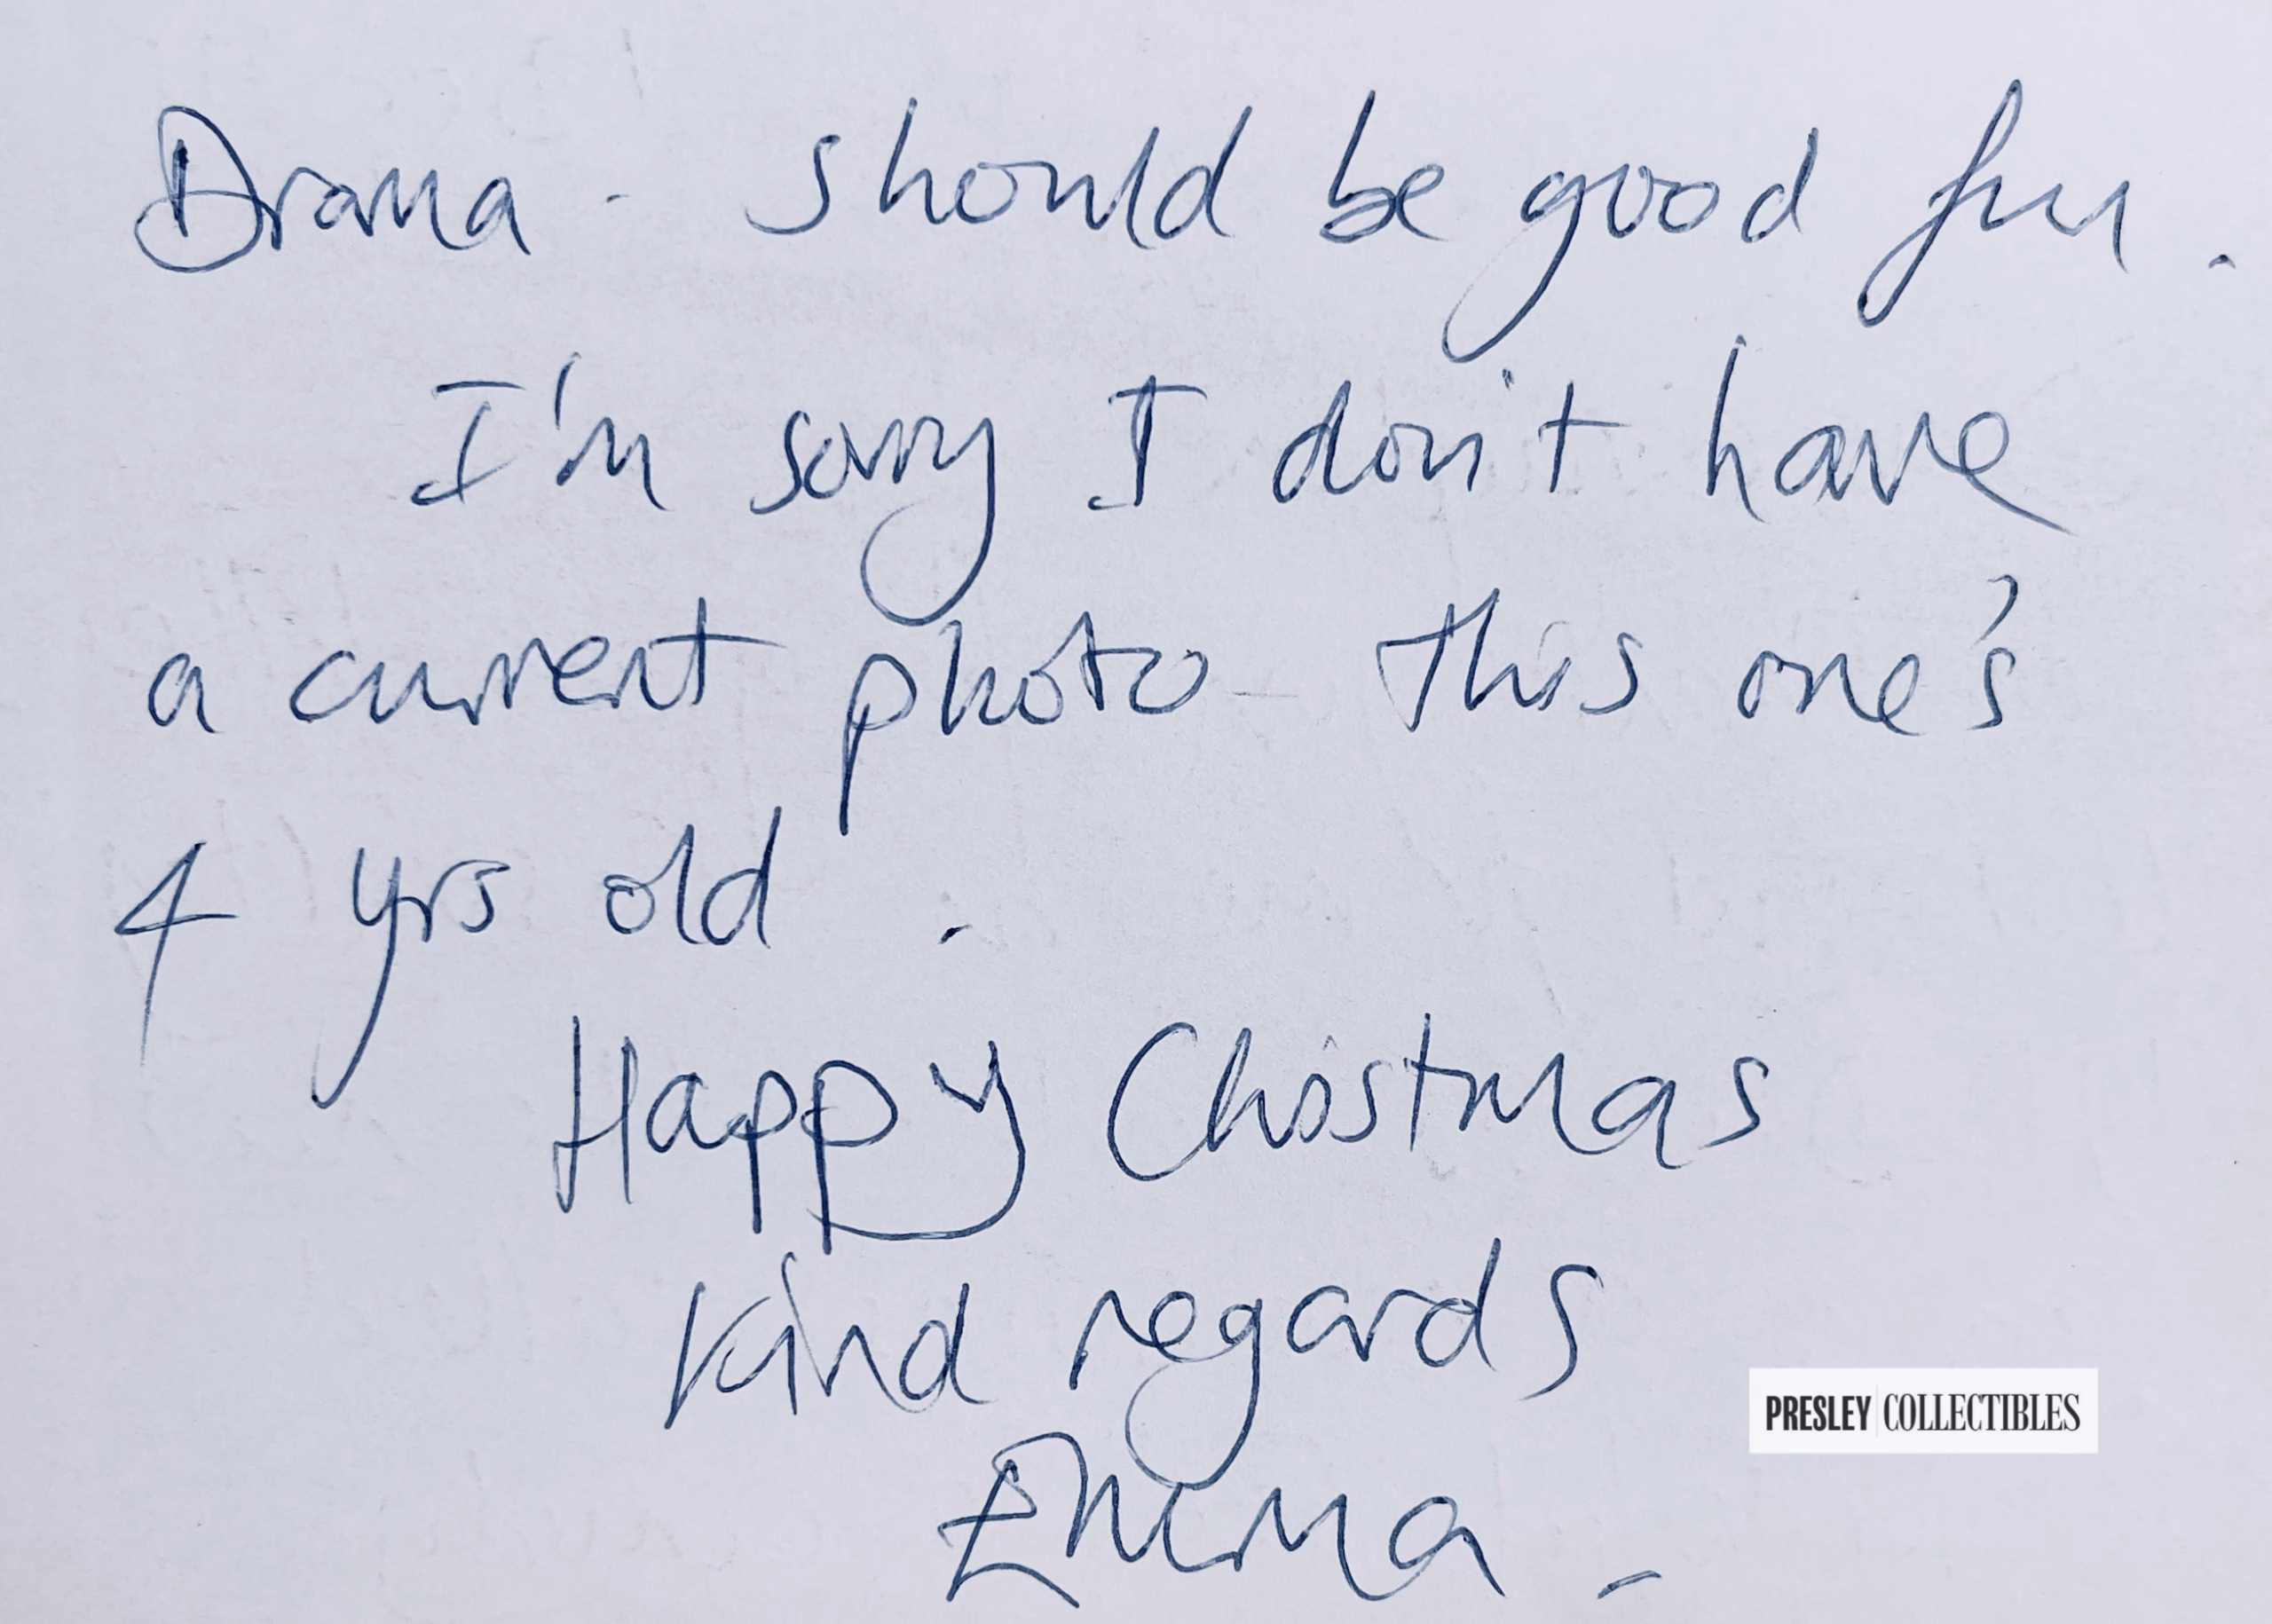 Drama - should be good fun.
I'm sorry I don't have
a current photo - this one's
4 yrs old.
Happy Christmas
Kind regards
Emma.
PRESLEY COLLECTIBLES